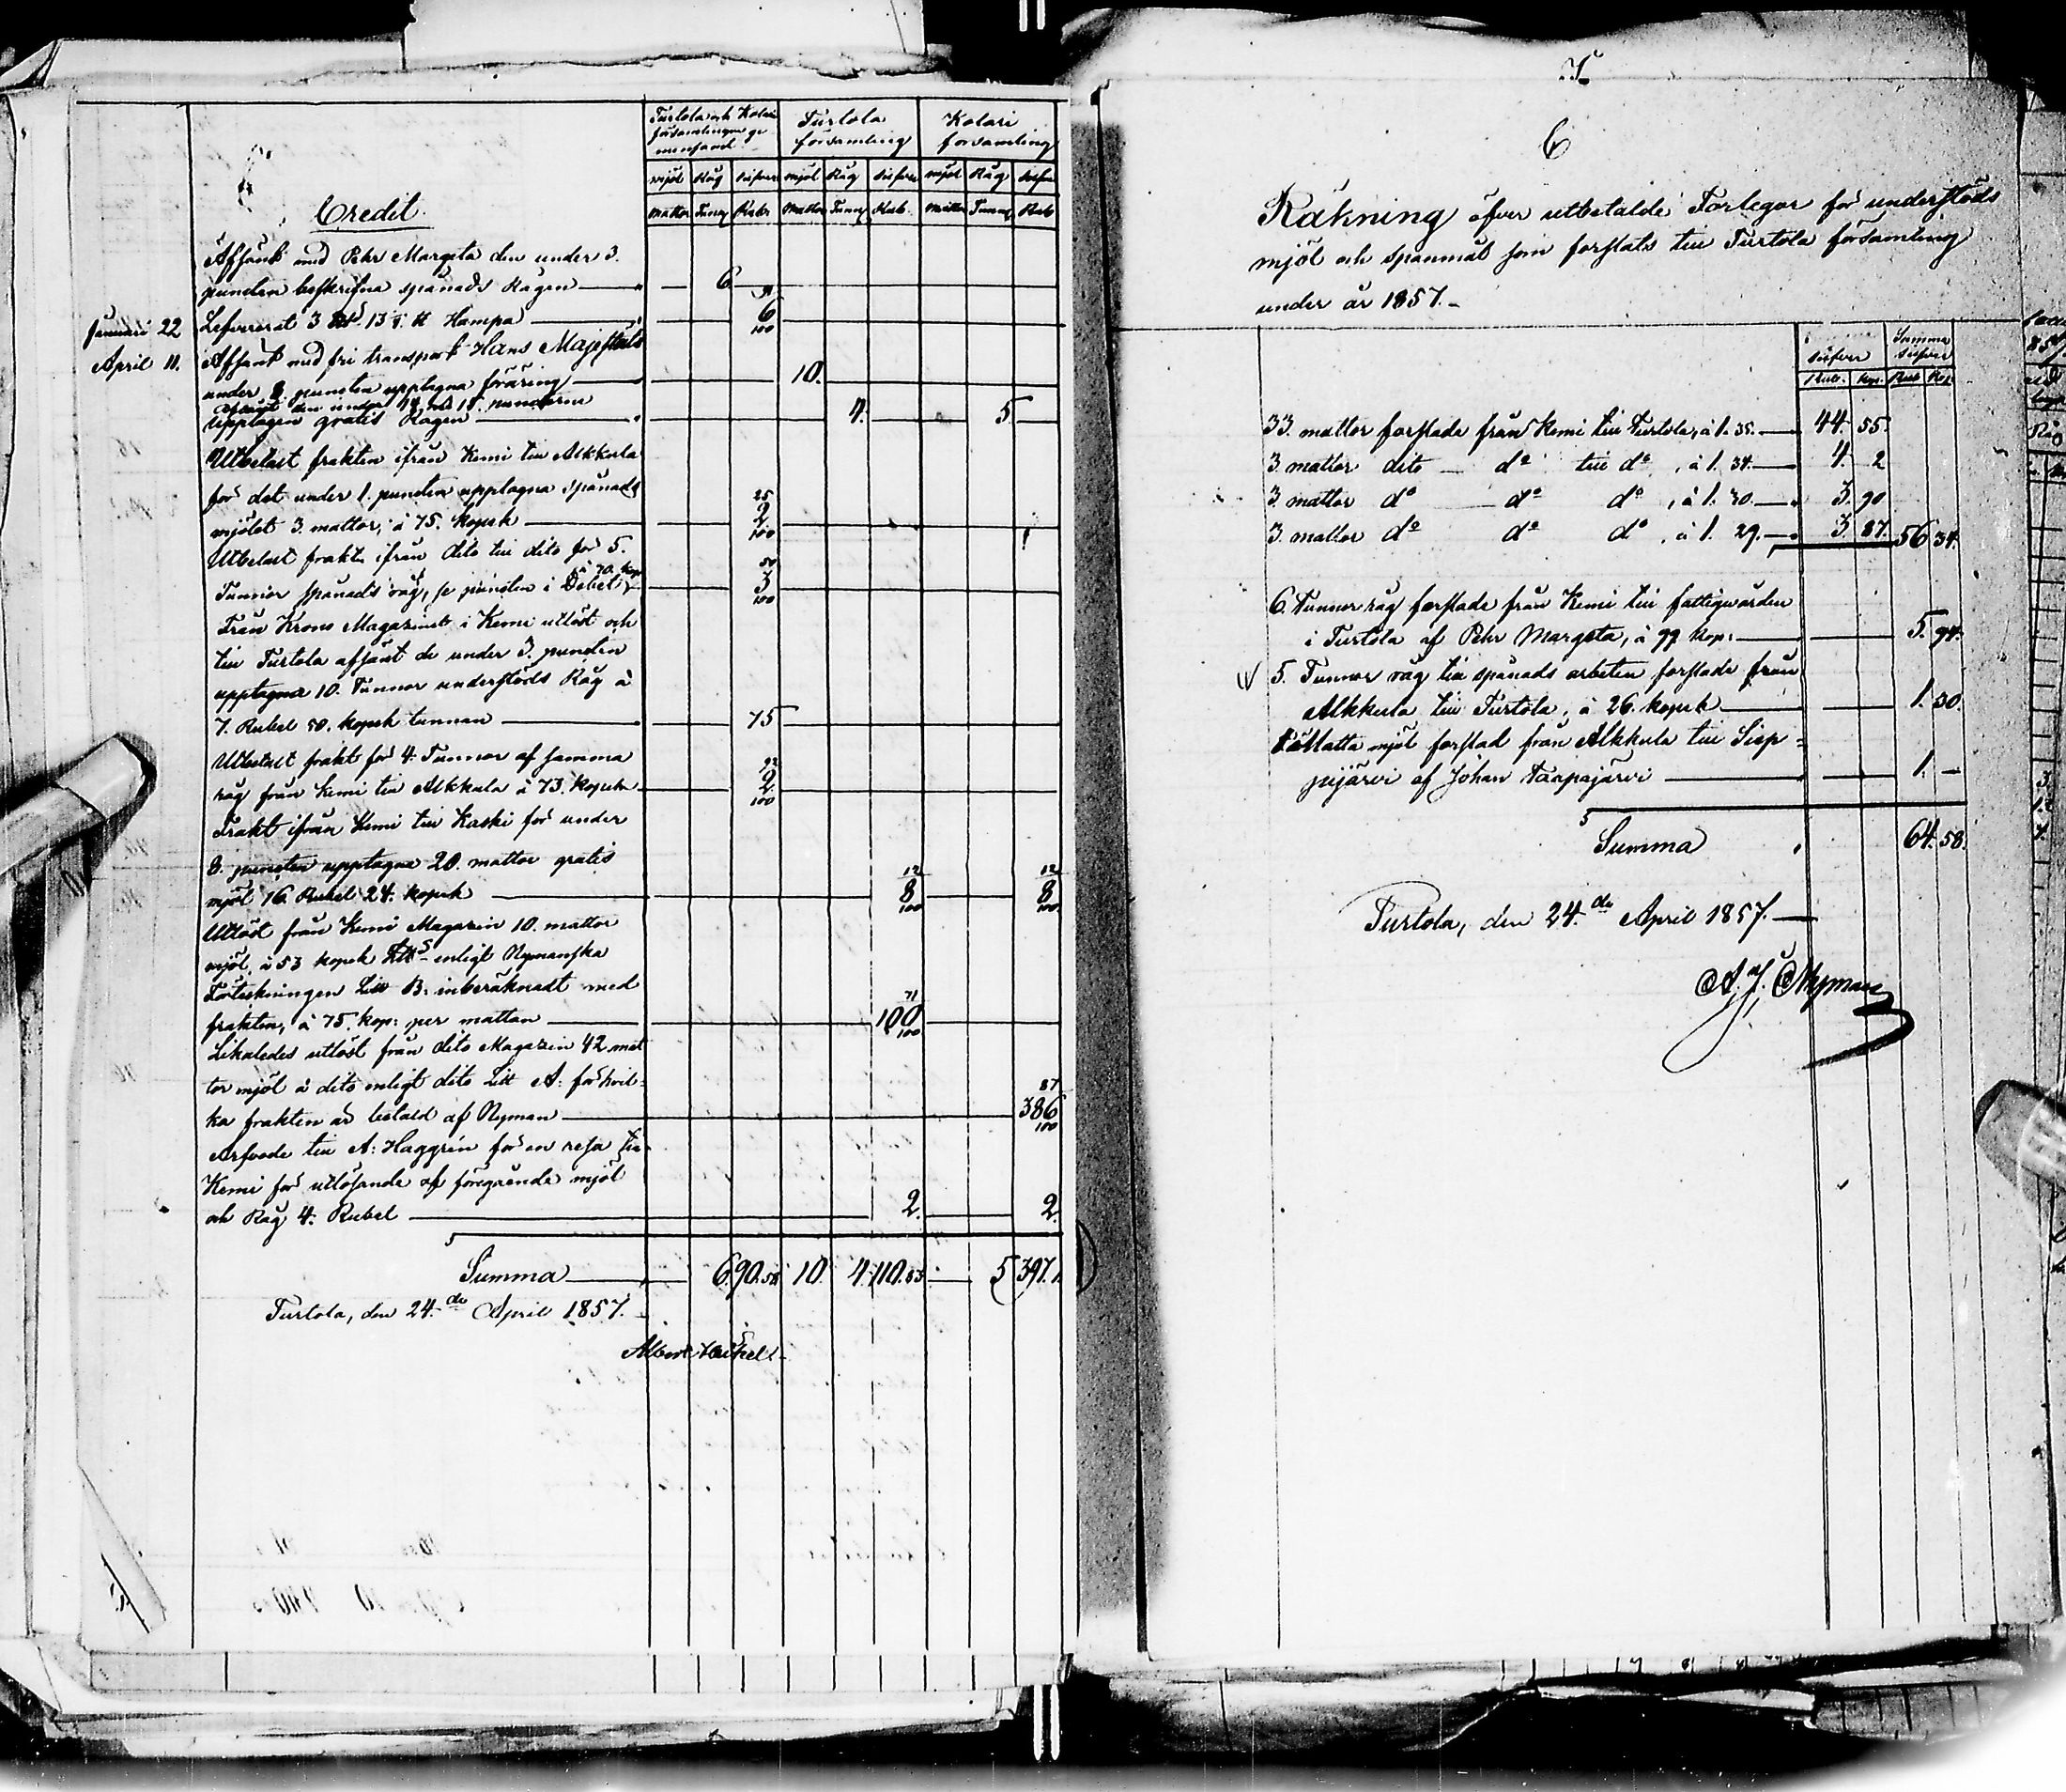 Turtola och Kolari
församlingar ge
mensamt
Turtola
församling
Kolari
församling
mjöl Råg silfver mjöl Råg silfver mjöl Råg silfver
Mattor Tunn Rubl Mattor Tunn Rub. Mattor Tunn Rub
Credit.
Afsändt med Pehr Margeta den under 3.
punkten beskrifna spånads Rågen — 6.
Januari 22 Lefvererat 3 13 Hampa — 6 91/100
April 11. Afsändt med fri transport Hans Majestäts
under 8 punkten upptagna föräring — 10.
den under 14 och 15. punkterna
upptagen gratis Rågen — 4. — 5
Utbetalt frakten ifrån Kemi till Alkkula
för det under 1. punkten upptagna spånads
mjölet 3. mattor, à 75. kopek — 2 25/100
Utbetalt frakt ifrån dito till dito för 5.
Tunnor spånads råg, se punkten i Debet, à 70. kop — 3 50/100
Från Krono Magazinet i Kemi utlöst och
till Turtola afsändt de under 3. punkten
upptagna 10. Tunnor understöds Råg à
7. Rubel 50. kopek tunnan — 75
Utbetalt frakt för 4. Tunnor af samma
råg från Kemi till Alkkula à 73. kopek — 2 92/100
Frakt ifrån Kemi till Kaski för under
8. punkten upptagne 20. mattor gratis
mjöl 16. Rubel 24. kopek — 8 12/100 — 8 12/100
Utlöst från Kemi Magazin 10. mattor
mjöl, à 53 kopek enligt Nymanska
Förteckningen Litt B. inberäknadt med
frakten, à 75. kop: per mattan — 100 71/100
Likaledes utlöst från dito Magazin 42 mat
tor mjöl à dito enligt dito Litt A: för hvil-
ka frakten är betald af Nyman — 386 87/100
Arfvode till A: Haggrén för en resa till
Kemi för utlösande af föregående mjöl
och Råg 4. Rubel — 2. — 2.
Summa — 6. 90.58 10. 4. 110.83 — 5 397.
Turtola, den 24.de April 1857.
Albert Heikel
C
Räkning öfver utbetalde Forlegor för understöds
mjöl och spanmål som forslats till Turtola församling
under år 1857.
silfver Summa silfver
Rub. Kop. Rub Kop
33 mattor forslade från Kemi till Turtola, à 1. 35. — 44. 55.
3. mattor dito — do till do, à 1. 34. — 4. 2
3. mattor do — do do, à 1. 30. — 3. 90
3. mattor do do do, à 1. 29. — 3. 87. 56 34.
6. Tunnor råg forslade från Kemi till fattigvården
i Turtola af Pehr Margeta, à 99 kop: — 5. 94.
5. Tunnor råg till spånads arbeten forslade från
Alkkula till Turtola, à 26. kopek — 1. 30.
Matta mjöl forslad från Alkkula till Siep-
pijärvi af Johan Taapajärvi — 1. —
Summa 64. 58.
Turtola, den 24.de April 1857. —
A. J. Nyman